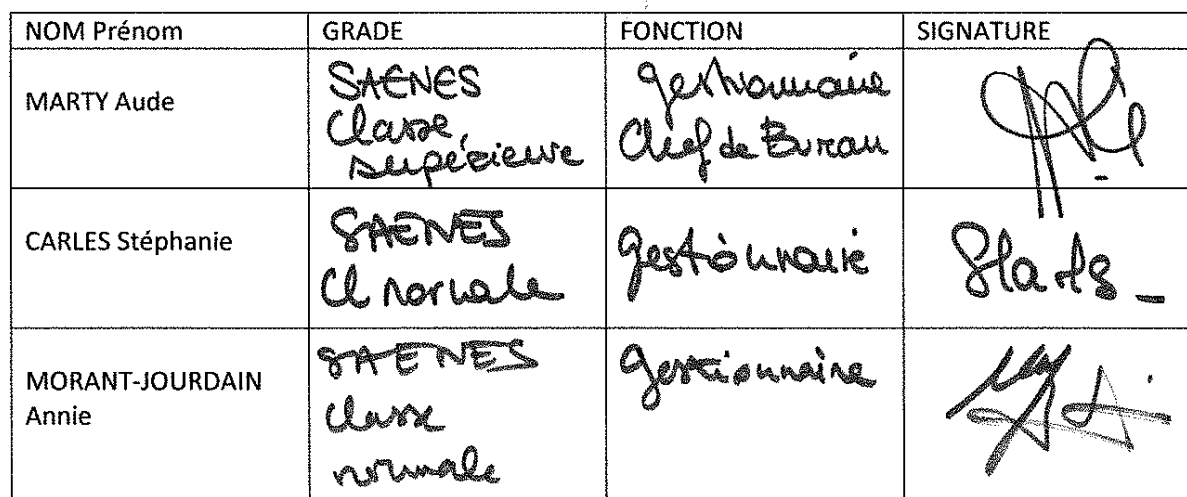 NOM Prénom GRADE FONCTION SIGNATURE
MARTY Aude
SAENES
Classe
supérieure
gestionnaire
Chef de Bureau
CARLES Stéphanie
SAENES
Cl normale
gestionnaire
MORANT-JOURDAIN
Annie
SAENES
classe
normale
gestionnaire